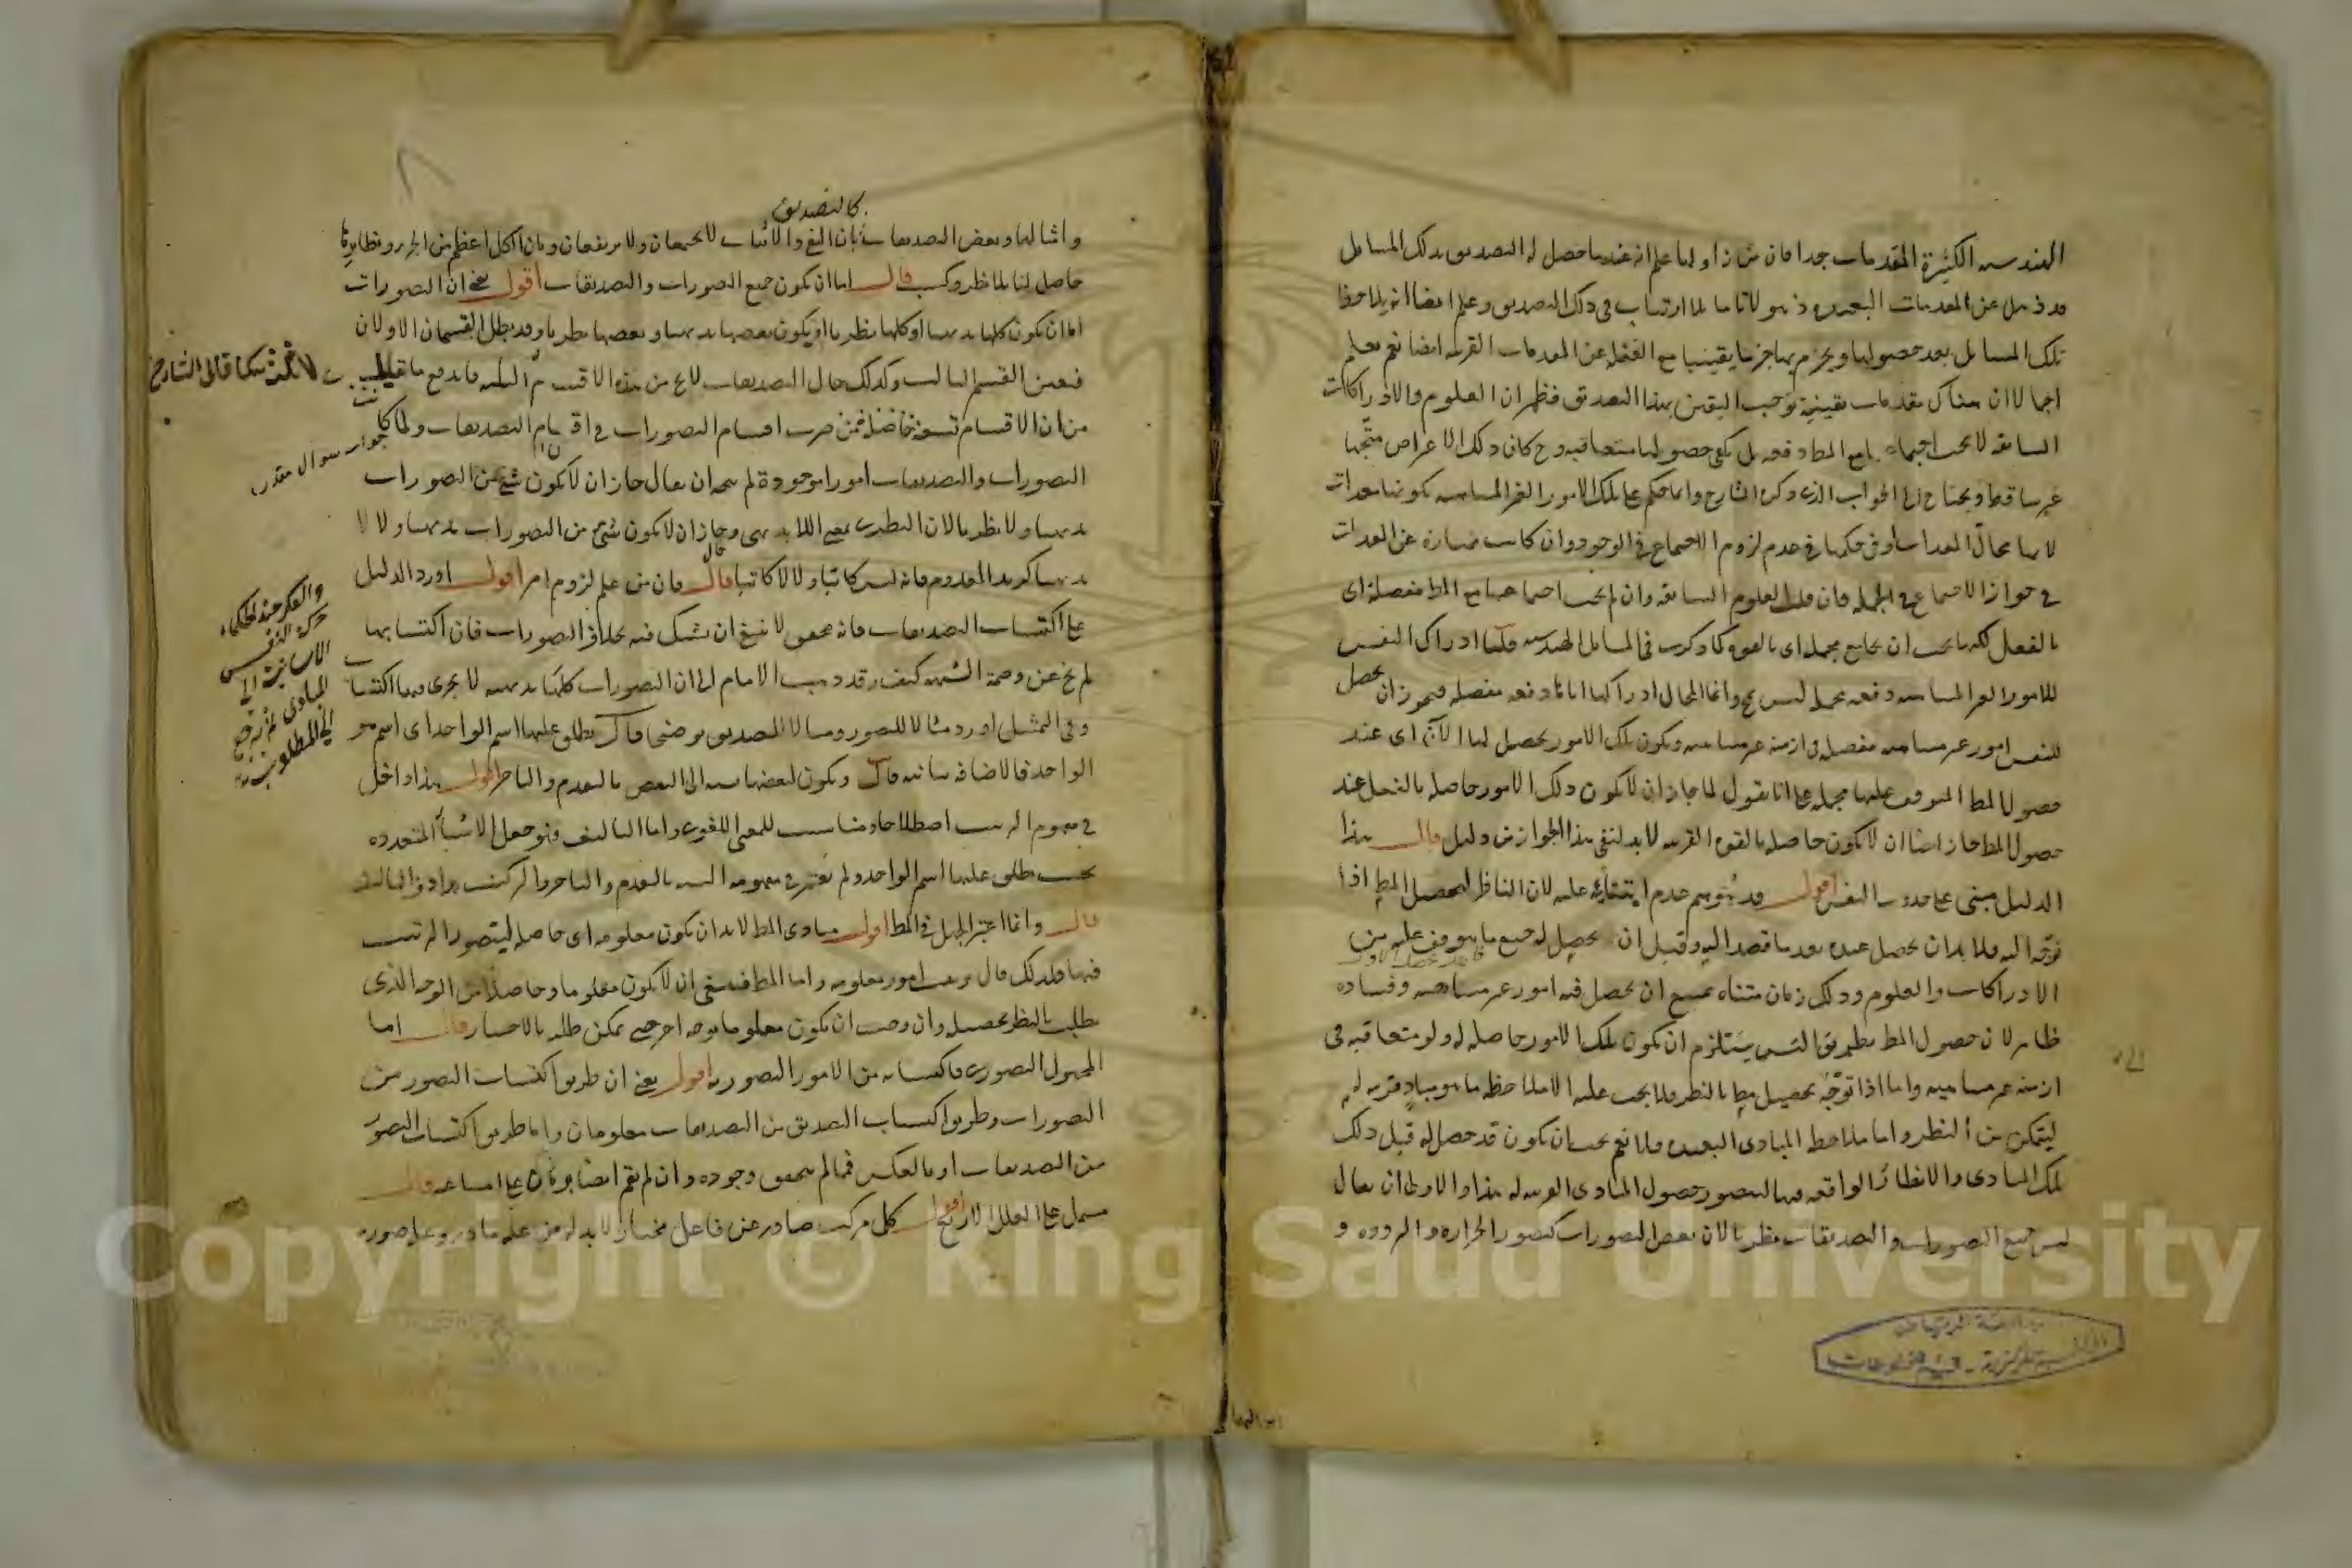 الهندسية الكثيرة المقدمات جدا فان من زاولها علم انه عندما حصل له التصديق بتلك المسايل
قد ذهل عن المقدمات البعيدة ذهولا تاما بلا ارتياب في ذلك التصديق وعلم ايضا انه يلاحظ
تلك المسايل بعد حصولها ويجزم بها جزما يقينيا مع الغفلة عن المقدمات القريبة ايضا نعم يعلم
اجمالا ان هناك مقدمات يقينية توجب اليقين بهذا التصديق فظهر ان العلوم والادراكات
السابقة لا يجب اجتماعها مع المط دفعة بل يكفي حصولها متعاقبة وح كان ذلك الاعراض متجها
غير ساقط ويحتاج الى الجواب الذي ذكره الشارح وانما حكم على تلك الامور الغير المتناهية بكونها معدات
لانها بحال المعدات او في حكمها في عدم لزوم الاجتماع في الوجود وان كانت مغايرة عن المعدات
في جواز الاجتماع في الجملة فان قلت العلوم السابقة وان لم يجب اجتماعها مع المط مفصلة اي
بالفعل لكنها يجب ان تجامع مجملة اي بالقوة كما ذكرت في المسايل الهندسية قلنا ادراك النفس
للامور الغير المتناهية دفعة مجملة ليس بمح وانما المحال ادراكها اياها دفعة مفصلة فيجوز ان يحصل
للنفس امور غير متناهية مفصلة في ازمنة غير متناهية ويكون تلك الامور يحصل لها الآن اي عند
حصول المط المتوقف عليها مجملة على انا نقول لما جاز ان لا يكون ذلك الامور حاصلة بالفعل عند
حصول المط جاز ايضا ان لا يكون حاصلة بالقوة القريبة لا بد لنفي هذا الجواز من دليل قال هذا
الدليل مبني على حدوث النفس اقول قد يتوهم عدم ابتنائه عليه لان الناظر لتحصيل المط اذا
توجه اليه فلا بد ان يحصل عنده بعد ما قصد اليه وقبل ان يحصل له جميع ما يتوقف عليه من
الادراكات والعلوم وذلك زمان متناه يمتنع ان يحصل فيه امور غير متناهية وفساده
ظاهر لان حصول المط بطريق التس يستلزم ان يكون تلك الامور حاصلة له ولو متعاقبة في
ازمنة غير متناهية واما اذا توجه بتحصيل مط بالنظر فلا يجب عليه الا ملاحظة ما هو مباد قريبة له
ليتمكن من النظر واما ملاحظة المبادي البعيدة فلا نعم يجب ان يكون قد حصل له قبل ذلك
تلك المبادي والانظار الواقعة فيها ليتصور حصول المبادي القريبة له هذا والاولى ان يقال
ليس جميع التصورات والتصديقات نظريا لان بعض التصورات كتصور الحرارة والبرودة و
كالتصديق
وامثالها وبعض التصديقات بان النفي والاثبات لا يجتمعان ولا يرتفعان وبان الكل اعظم من الجزء ونظايرها
حاصل لنا بلا نظر وكسب قال اما ان يكون جميع التصورات والتصديقات اقول يعني ان التصورات
اما ان يكون كلها بديهيا او كلها نظريا او يكون بعضها بديهيا وبعضها نظريا وقد بطل القسمان الاولان
فتعين القسم الثالث وكذلك حال التصديقات لا يخ من هذه الاقسام الثلثة فاندفع ما قيل
من ان الاقسام تسعة حاصلة من ضرب اقسام التصورات في اقسام التصديقات ولما كانت
التصورات والتصديقات امورا موجودة لم يتجه ان يقال جاز ان لا يكون شيء من التصورات
بديهيا ولا نظريا لان النظري بمعنى اللابديهي وجاز ان لا يكون شيء من التصورات بديهيا ولا لا
بديهيا كزيد المعدوم فانه ليس كاتبا ولا لا كاتبا قال فان من علم لزوم امر اقول اورد الدليل
على اكتساب التصديقات فانه محقق لا ينبغي ان يشك فيه بخلاف التصورات فان اكتسابها
لم يخ عن وصمة الشبهة كيف وقد ذهب الامام الى ان التصورات كلها بديهية لا يجري فيها اكتساب
وفي التمثيل اورد مثالا للتصور ومثالا للتصديق توضيحا قال يطلق عليها اسم الواحد اي اسم هو
الواحد فالاضافة بيانية قال ويكون لبعضها نسبة الى البعض بالتقدم والتاخر اقول هذا داخل
في مفهوم الترتيب اصطلاحا ومناسب للمعنى اللغوي واما التاليف فهو جعل الاشياء المتعددة
بحيث يطلق عليها اسم الواحد ولم يعتبر في مفهومه النسبة بالتقدم والتاخر والتركيب مرادف التاليف
قال وانما اعتبر الجهل في المط اقول مبادي المط لا بد ان يكون معلومة اي حاصلة ليتصور الترتيب
فيها فلذلك قال ترتيب امور معلومة واما المط فينبغي ان لا يكون معلوما وحاصلا من الوجه الذي
يطلب بالنظر تحصيله وان وجب ان يكون معلوما بوجه آخر حتى يمكن طلبه بالاختيار قال اما
المجهول التصوري فاكتسابه من الامور التصورية اقول يعني ان طريق اكتساب التصور من
التصورات وطريق اكتساب التصديق من التصديقات معلومان واما طريق اكتساب التصور
من التصديقات او بالعكس فمما لم يتحقق وجوده وان لم يقم ايضا برهان على امتناعه قال
يشتمل على العلل الاربع اقول كل مركب صادر عن فاعل مختار لا بد له من علة مادية وعلة صورية
لا تسعة كما قال الشارح
جواب سوال مقدر
والفكر عند الحكماء
حركة النفس
الانسانية الى
المبادي ثم ترجع
الى المطلوب
جامعة الرياض
المكتبة المركزية - قسم المخطوطات
Copyright © King Saud University